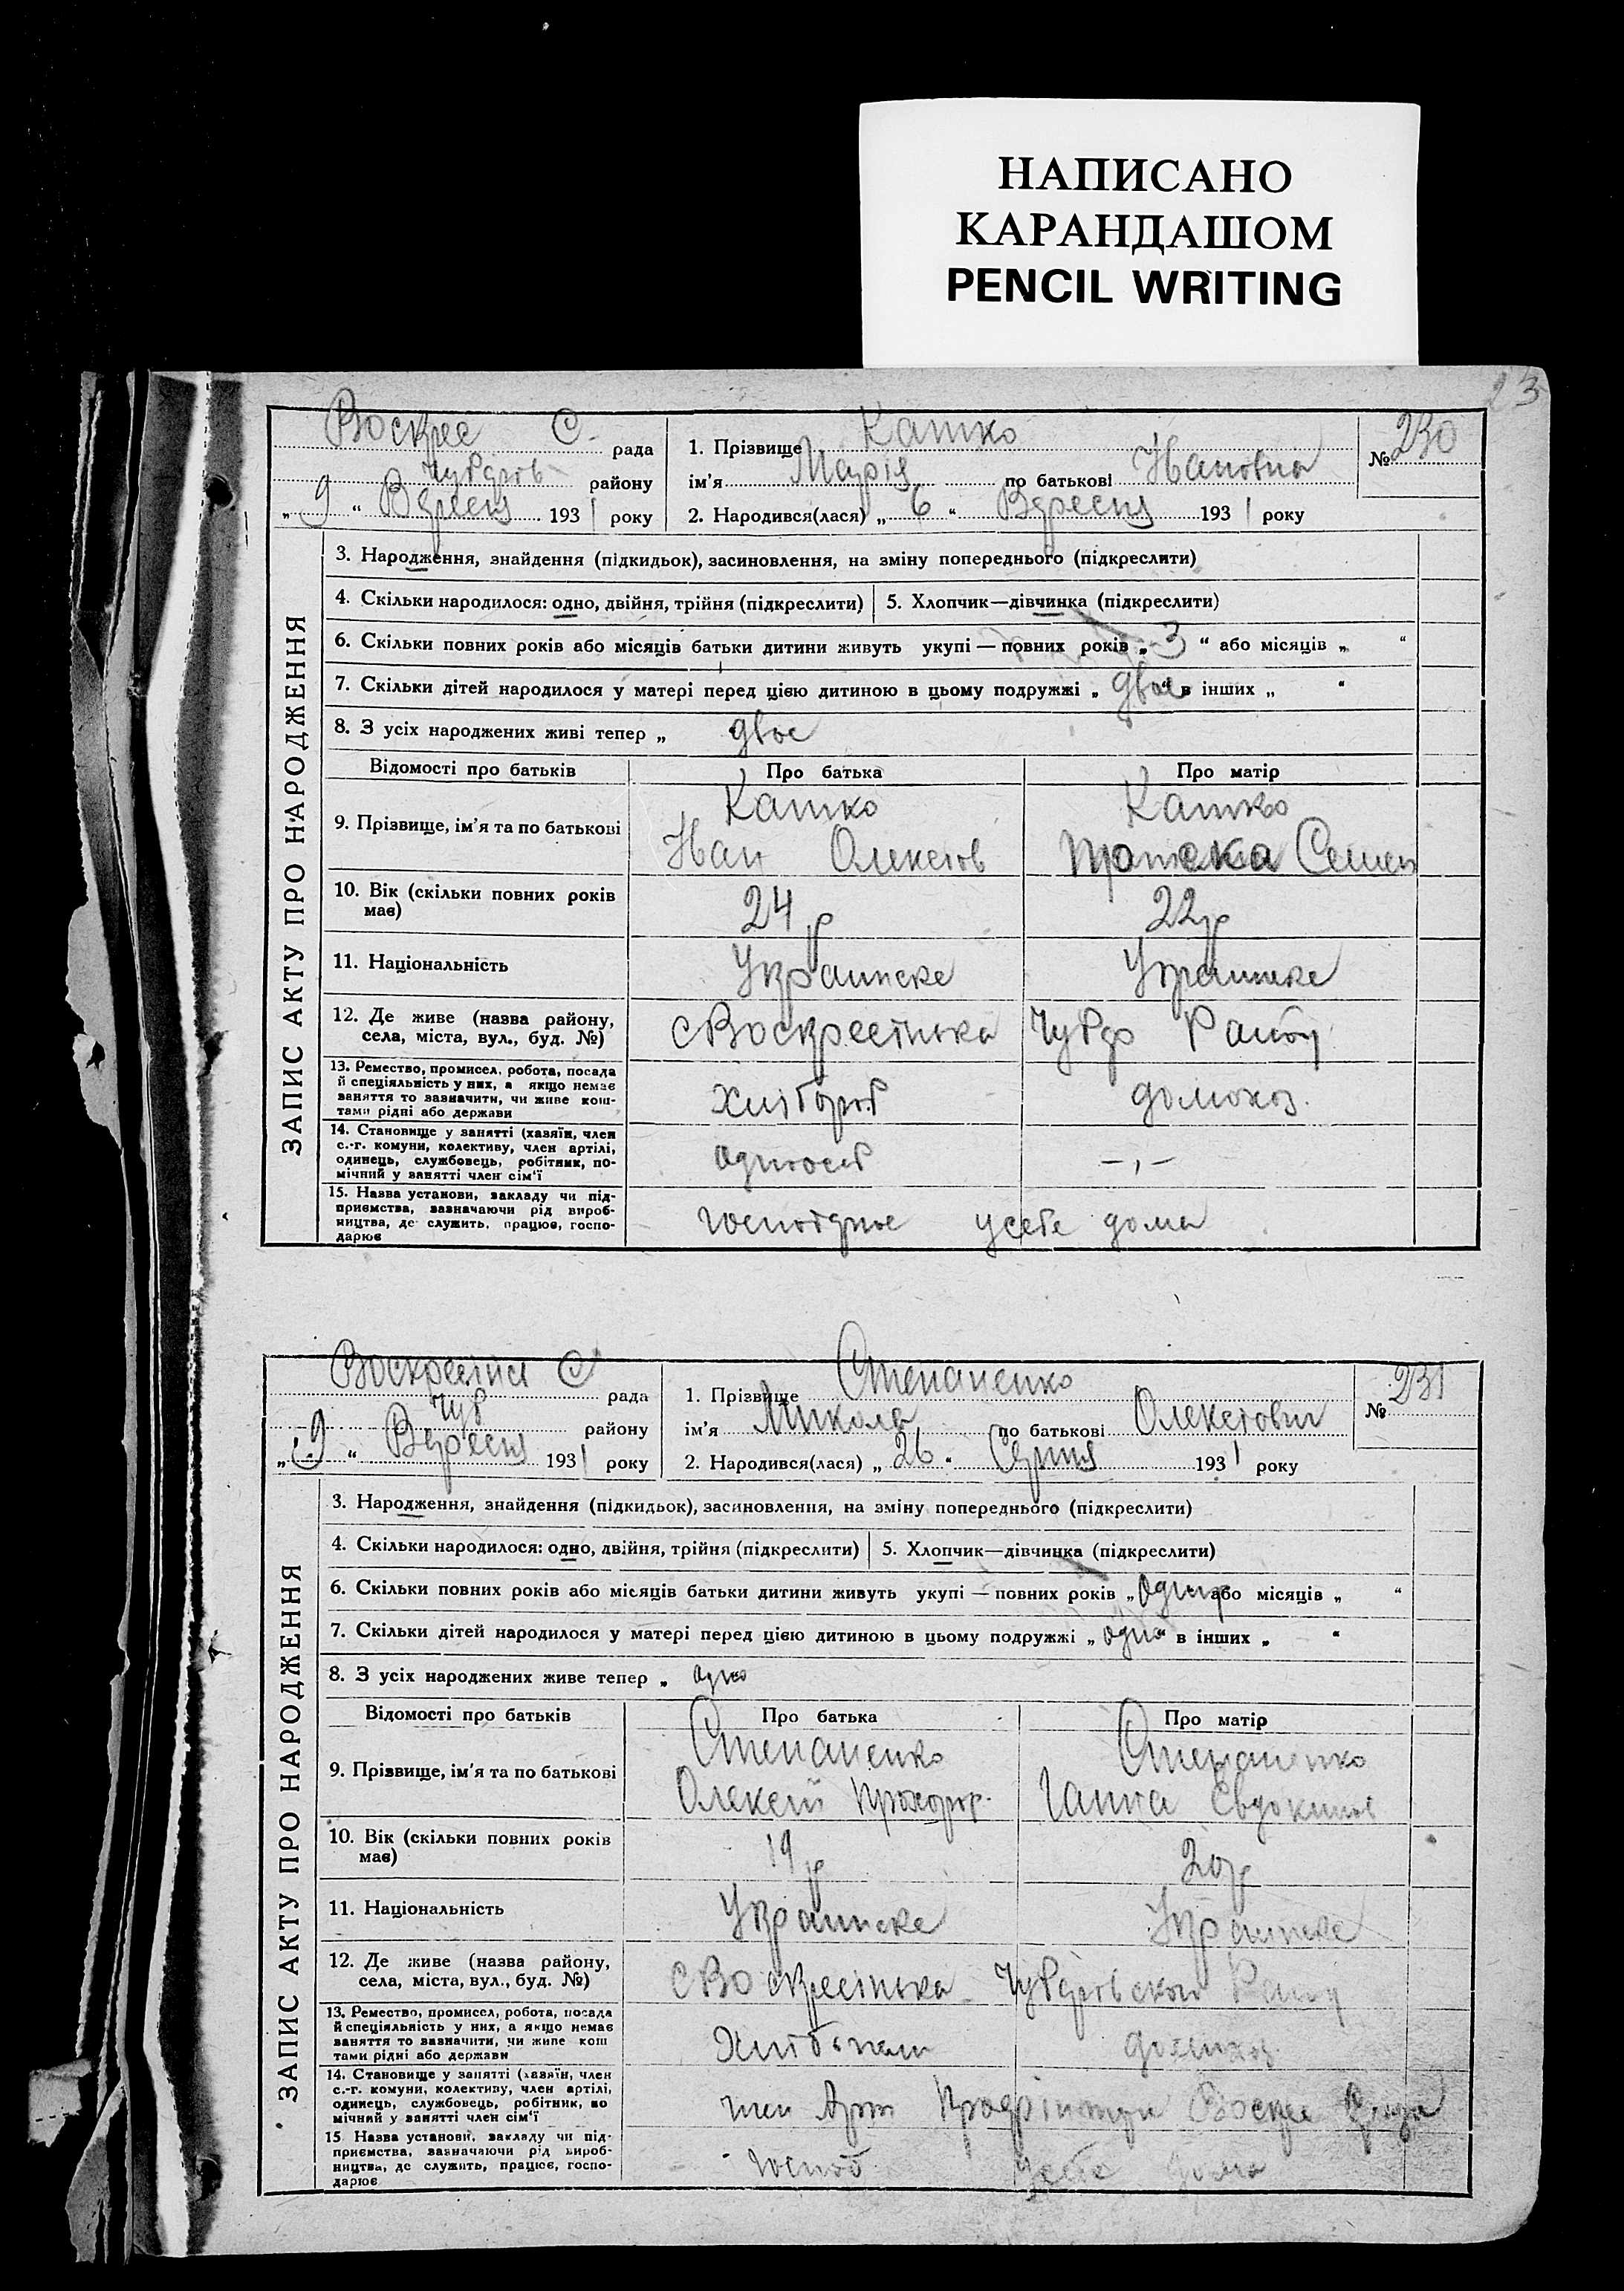 НАПИСАНО
КАРАНДАШОМ
PENCIL WRITING
23
ЗАПИС АКТУ ПРО НАРОДЖЕННЯ
Воскрес С. рада
району
„ 9 “ Вересня 1931 року
1. Прізвище Катко
ім’я Марія по батькові Івановна
2. Народився(лася) „ 6 “ Вересня 1931 року
№ 230
3. Народження, знайдення (підкидьок), засиновлення, на зміну попереднього (підкреслити)
4. Скільки народилося: одно, двійня, трійня (підкреслити) 5. Хлопчик—дівчинка (підкреслити)
6. Скільки повних років або місяців батьки дитини живуть укупі — повних років „ 3 “ або місяців „ “
7. Скільки дітей народилося у матері перед цією дитиною в цьому подружжі „ двое “ в інших „ “
8. З усіх народжених живі тепер „ двое
Відомості про батьків Про батька Про матір
9. Прізвище, ім’я та по батькові Катко Катко
Иван Олексіів Семен
10. Вік (скільки повних років має) 24 р 22 р
11. Національність Украинске Украинске
12. Де живе (назва району, села, міста, вул., буд. №) с Воскресінська
13. Ремество, промисел, робота, посада
й спеціяльність у них, а якщо немає
заняття то зазначити, чи живе кош-
тами рідні або держави
Хлібороб домохоз.
14. Становище у занятті (хазяїн, член
с.-г. комуни, колективу, член артілі,
одинець, службовець, робітник, по-
мічний у занятті член сім’ї
–,–
15. Назва установи, закладу чи під-
приємства, зазначаючи рід вироб-
ництва, де служить, працює, госпо-
дарює
усебе дома
ЗАПИС АКТУ ПРО НАРОДЖЕННЯ
С рада
Чуб району
„ 9 “ Вересня 1931 року
1. Прізвище Степаненко
ім’я Микола по батькові Олексіович
2. Народився(лася) „ 26 “ Серпня 1931 року
№ 231
3. Народження, знайдення (підкидьок), засиновлення, на зміну попереднього (підкреслити)
4. Скільки народилося: одно, двійня, трійня (підкреслити) 5. Хлопчик—дівчинка (підкреслити)
6. Скільки повних років або місяців батьки дитини живуть укупі — повних років „ або місяців „ “
7. Скільки дітей народилося у матері перед цією дитиною в цьому подружжі „ одна “ в інших „ “
8. З усіх народжених живе тепер „ одно
Відомості про батьків Про батька Про матір
9. Прізвище, ім’я та по батькові Степаненко Степаненко
Олексій Прохор. Ганна Євдокимов
10. Вік (скільки повних років має) 19 р 20 р
11. Національність Украинске Украинске
12. Де живе (назва району, села, міста, вул., буд. №) с Воскресінська
13. Ремество, промисел, робота, посада
й спеціяльність у них, а якщо немає
заняття то зазначити, чи живе кош
тами рідні або держави
домохоз.
14. Становище у занятті (хазяїн, член
с.-г. комуни, колективу, член артілі,
одинець, службовець, робітник, по
мічний у занятті член сім’ї
член Арт
15. Назва установи, закладу чи під-
приємства, зазначаючи рід вироб-
ництва, де служить, працює, госпо-
дарює
усебе дома